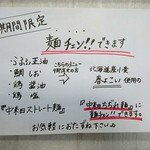 期間限定
麺チェンジ!!できます
・うふふ正油
・鯛しお
・鶏醤油
・鶏塩
こちらのメニュー
北海道産小麦
春よこい使用の
『中細ストレート麺』
『中太ちぢれ麺』に
麺チェンジ!!できます
お気軽におたずね下さい